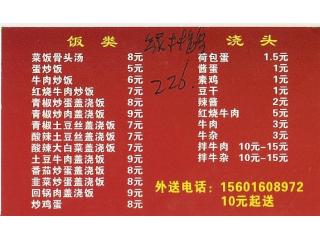 饭类
菜饭骨头汤 8元
蛋炒饭 5元
牛肉炒饭 6元
红烧牛肉炒饭 7元
青椒炒蛋盖浇饭 7元
青椒肉丝盖浇饭 9元
青椒土豆丝盖浇饭 7元
酸辣土豆丝盖浇饭 7元
酸辣大白菜盖浇饭 7元
土豆牛肉盖浇饭 9元
番茄炒蛋盖浇饭 8元
韭菜炒蛋盖浇饭 8元
回锅肉盖浇饭 9元
炒鸡蛋 8元
226.
浇头
荷包蛋 1.5元
酱蛋 1元
素鸡 1元
豆干 1元
辣酱 2元
红烧牛肉 5元
牛肉 3元
牛杂 3元
拌牛肉 10元~15元
拌牛杂 10元~15元
外送电话：15601608972
10元起送